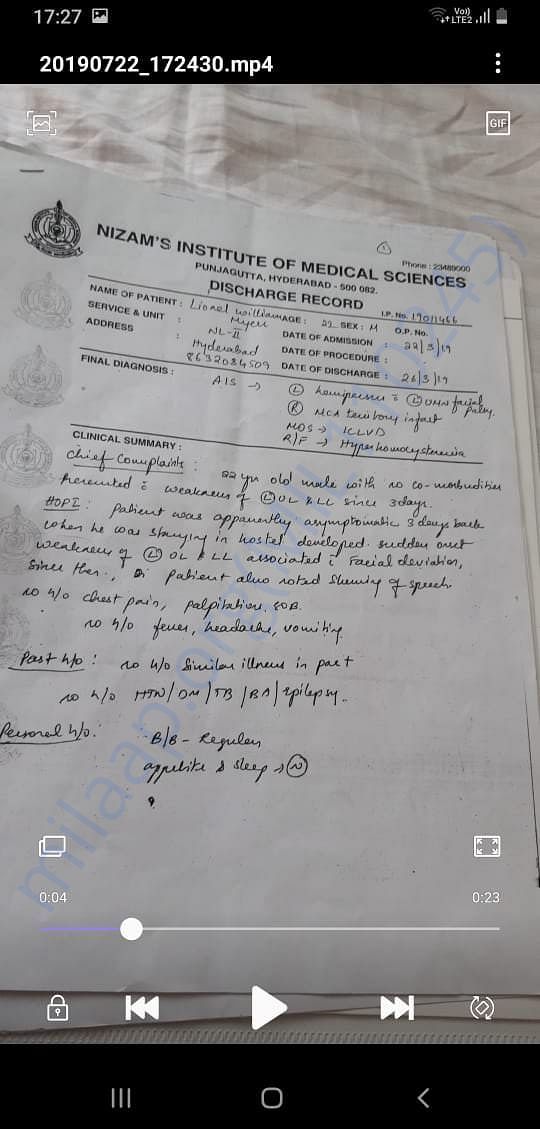 17:27
Vo))
LTE2
20190722_172430.mp4
GIF
1
Phone : 23489000
NIZAM'S INSTITUTE OF MEDICAL SCIENCES
PUNJAGUTTA, HYDERABAD - 500 082.
DISCHARGE RECORD
I.P. No. 19011466
NAME OF PATIENT : Lionel William AGE : 22 SEX : M O.P. No.
SERVICE & UNIT : NL-II DATE OF ADMISSION : 22/3/19
ADDRESS : Hyderabad DATE OF PROCEDURE :
8632084509 DATE OF DISCHARGE : 26/3/19
FINAL DIAGNOSIS : AIS → (L) hemiparesis c̄ (L) UMN facial palsy.
(R) MCA territory infarct
MOS → ICLVD
R/F → Hyperhomocysteinemia
CLINICAL SUMMARY :
Chief Complaints : 22 yr old male with no co-morbidities
Presented c̄ weakness of (L) UL & LL since 3 days.
HOPI : Patient was apparently asymptomatic 3 days back
when he was staying in hostel developed sudden onset
weakness of (L) UL & LL associated c̄ facial deviation,
since then, patient also noted slurring of speech
no h/o chest pain, palpitation, SOB.
no h/o fever, headache, vomiting
Past h/o : no h/o similar illness in past
no h/o HTN/DM/TB/BA/epilepsy.
Personal h/o : B/B - Regular
appetite & sleep → (N)
milaap.org
0:04
0:23